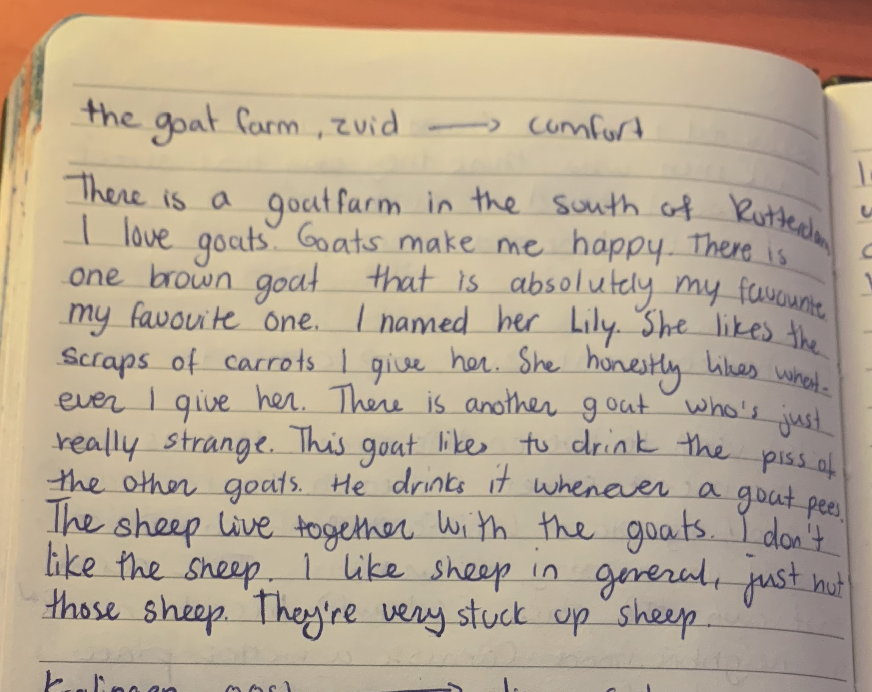 the goat farm, zuid → comfort
There is a goatfarm in the south of Rotterdam
I love goats. Goats make me happy. There is
one brown goat that is absolutely my favourite
my favouite one. I named her Lily. She likes the
scraps of carrots I give her. She honestly likes what-
ever I give her. There is another goat who's just
really strange. This goat likes to drink the piss of
the other goats. He drinks it whenever a goat pees.
The sheep live together with the goats. I don't
like the sheep. I like sheep in general, just not
those sheep. They're very stuck up sheep.